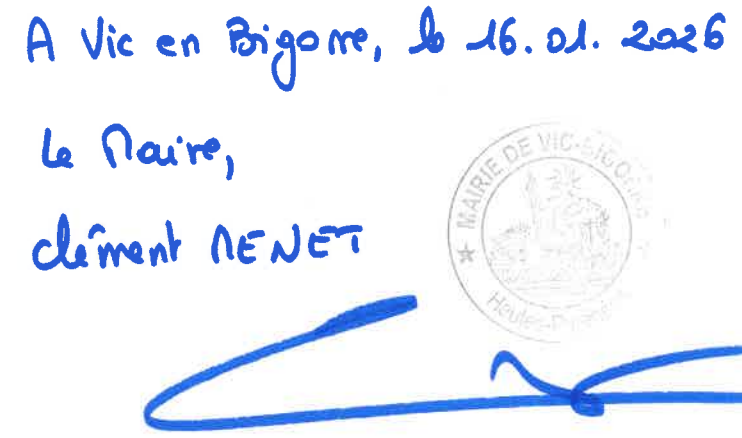 A Vic en Bigorre, le 16.01.2026
Le Maire,
Clément MENET
* MAIRIE DE VIC-BIGORRE
Hautes-Pyrénées